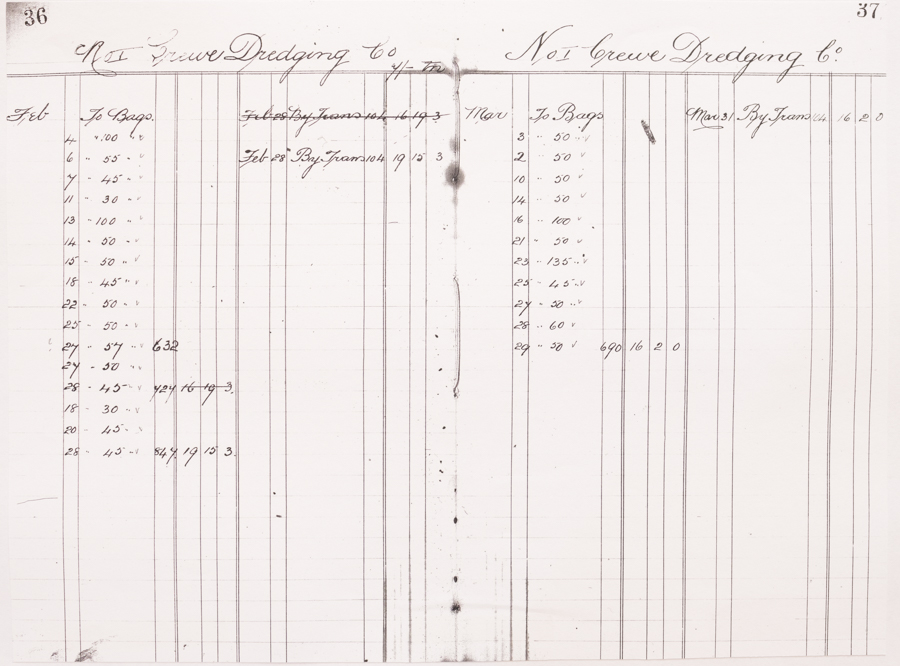 36
No I Crewe Dredging Co
Feb To Bags. Feb 28 By Trans 104 16 19 3
4 " 100 " "
6 " 55 " "
Feb 28 By Trans 104 19 15 3
7 - 45 " "
11 - 30 " "
13 - 100 " "
14 - 50 " "
15 - 50 " "
18 - 45 " "
22 - 50 " "
25 - 50 " "
27 - 57 " " 632
27 - 50 " "
28 - 45 " " 727 16 19 3
18 - 30 " "
20 - 45 " "
28 - 45 " " 847 19 15 3
37
No I Crewe Dredging Co.
Mar To Bags Mar 31 By Trans 104 16 2 0
3 " 50 " "
2 " 50 "
10 " 50 "
14 " 50 "
16 " 100 "
21 " 50 "
23 " 135 " "
25 - 45 " "
27 - 50 " "
28 " 60 "
29 " 50 " 690 16 2 0